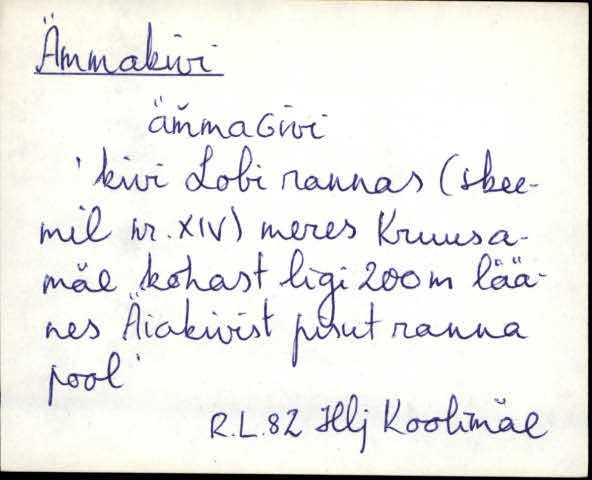 Ämmakivi
äm̆maGivi
'kivi Lobi rannas (skee-
mil nr. XIV) meres Kruusa-
mäe kohast ligi 200 m lää-
nes Äiakivist pisut ranna
pool'
R.L. 82 Hlj Koolimäe